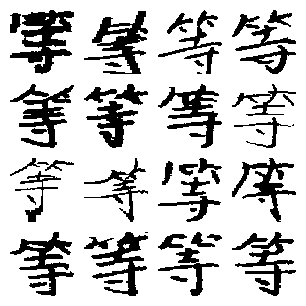 等等等等
等等等等
等等等等
等等等等